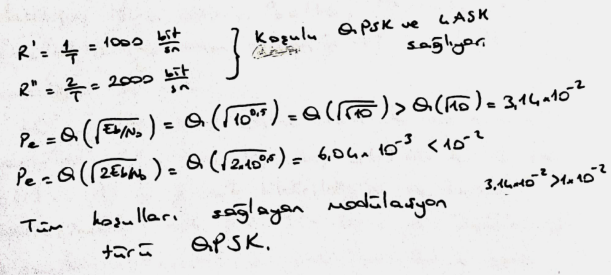 R' = 1/T = 1000 bit/sn } Koşulu QPSK ve 4ASK
R'' = 2/T = 2000 bit/sn sağlıyor.
Pe = Q(√(Eb/N0)) = Q(√(10^0,5)) = Q(√(√10)) > Q(√10) = 3,14x10^-2
Pe = Q(√(2Eb/N0)) = Q(√(2.10^0,5)) = 6,04x10^-3 < 10^-2
3,14x10^-2 > 1x10^-2
Tüm koşulları sağlayan modülasyon
türü QPSK.